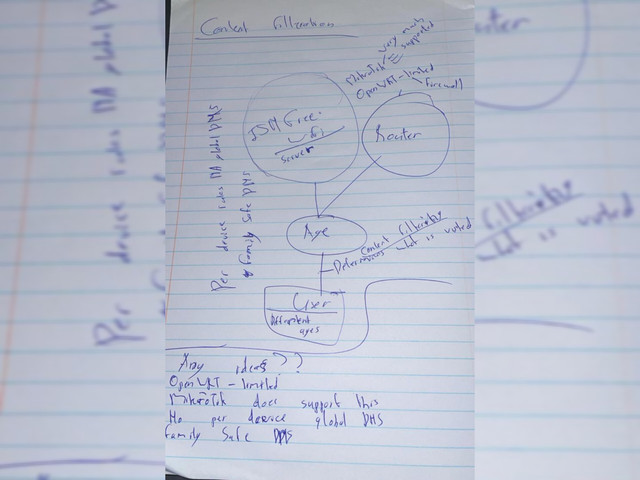 Content filteration
Mikrotik
very much
supported
OpenWRT - limited
Firewall
ISM Free
Wifi
server
Router
Age
Content filtering
Determines what is
User
Different
ages
Per device rules NA global DNS
family safe DNS
Any ideas??
OpenWRT - limited
MikroTok does support this
No per device global DNS
family Safe DNS